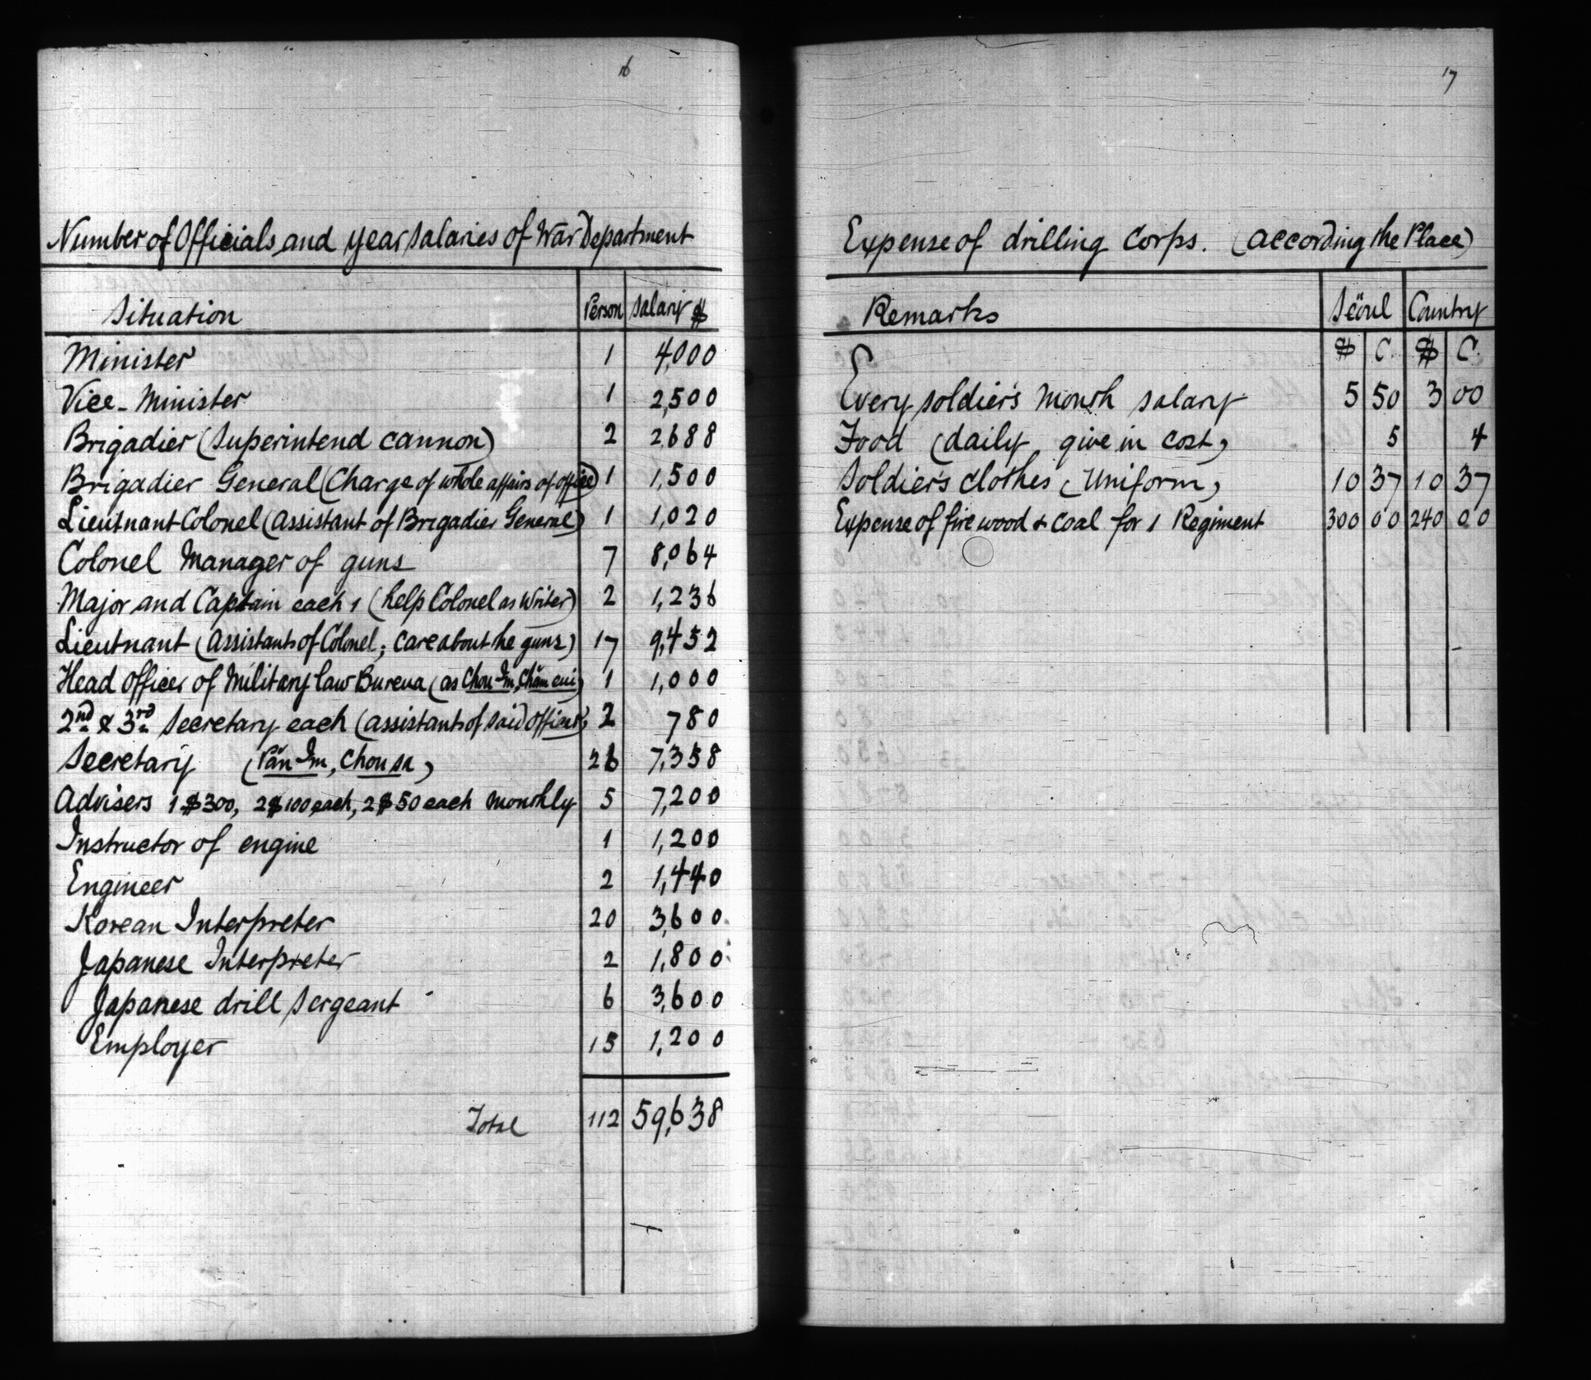 16
Number of Officials and year salaries of War Department
Situation Person Salary $
Minister 1 4,000
Vice-Minister 1 2,500
Brigadier (Superintend cannon) 2 2688
Brigadier General (Charge of whole affairs of office) 1 1,500
Lieutnant Colonel (assistant of Brigadier General) 1 1,020
Colonel Manager of guns 7 8,064
Major and Captain each 1 (help Colonel as Writer) 2 1,236
Lieutnant (assistants of Colonel; care about he guns) 17 9,452
Head officer of Military law Bureua (as Chou-Im, Cham eui) 1 1,000
2nd & 3rd Secretary each (assistants of said officer) 2 780
Secretary (Pän-Im, Chousa) 26 7,358
Advisers 1 $300, 2 $100 each, 2 $50 each monthly 5 7,200
Instructor of engine 1 1,200
Engineer 2 1,440
Korean Interpreter 20 3,600
Japanese Interpreter 2 1,800
Japanese drill Sergeant 6 3,600
Employer 15 1,200
Total 112 59,638
17
Expense of drilling Corps. (according the Place)
Remarks Sëoul Country
$ C. $ C.
Every soldier's month salary 5 50 3 00
Food (daily give in cost) 5 4
Soldier's clothes (Uniform) 10 37 10 37
Expense of fire wood & Coal for 1 Regiment 300 00 240 00